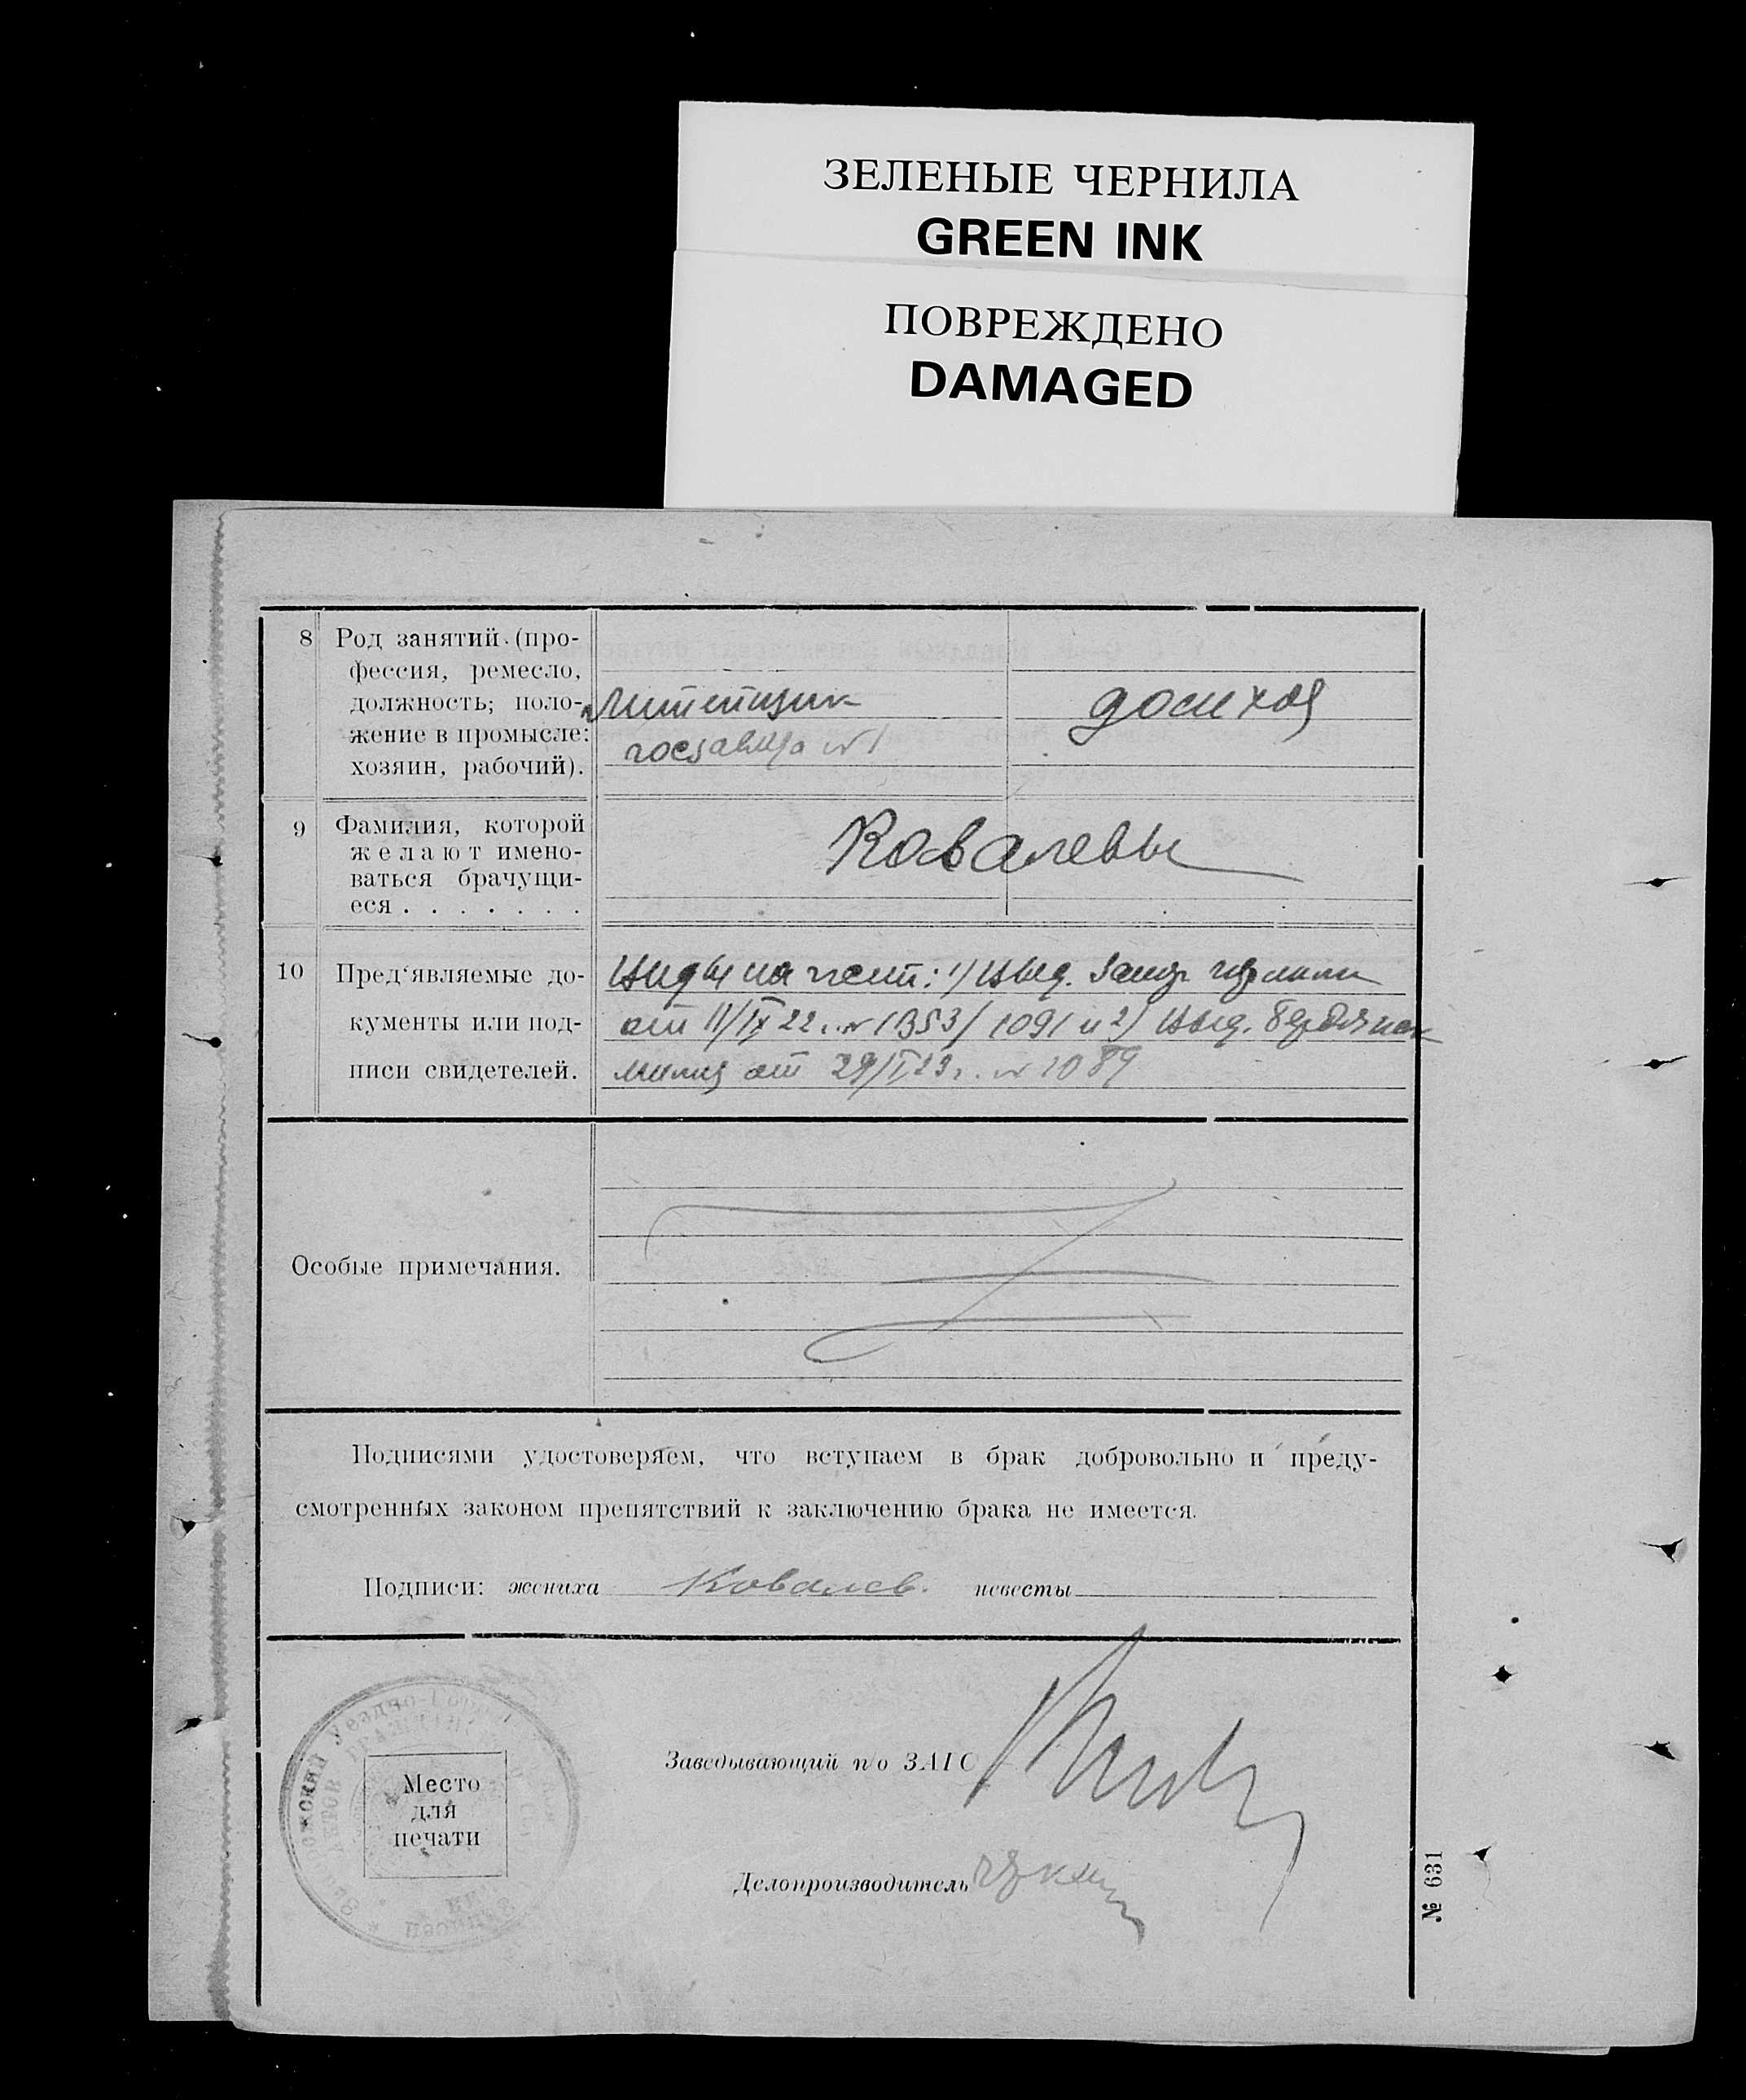 ЗЕЛЕНЫЕ ЧЕРНИЛА
GREEN INK
ПОВРЕЖДЕНО
DAMAGED
8 Род занятий (про-
фессия, ремесло,
должность; поло-
жение в промысле:
хозяин, рабочий).
Литейщик
госзавода №1
домхоз
9 Фамилия, которой
желают имено-
ваться брачущи-
еся . . . . . . .
Ковалевы
10 Пред'являемые до-
кументы или под-
писи свидетелей.
Виды на жит: 1) выд.
от 11/IX 22 г. № 1353/1091 и 2) выд. Бердянск
милиц от 29/I 23 г. № 1089
Особые примечания.
Подписями удостоверяем, что вступаем в брак добровольно и преду-
смотренных законом препятствий к заключению брака не имеется.
Подписи: жениха Ковалев. невесты
Заведывающий п/о ЗАГС
Место
для
печати
Делопроизводитель
№ 631